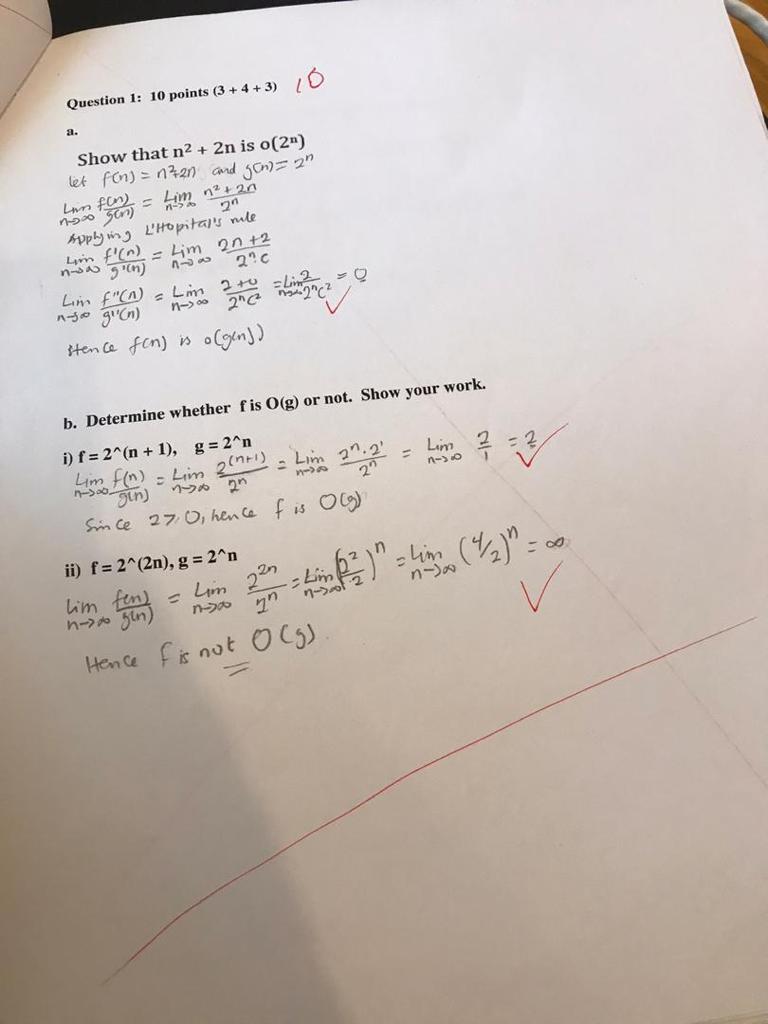 Question 1: 10 points (3 + 4 + 3) 10
a.
Show that n² + 2n is o(2ⁿ)
let f(n) = n²+2n and g(n) = 2ⁿ
Lim n->∞ f(n)/g(n) = Lim n->∞ (n² + 2n)/2ⁿ
Applying L'Hopital's rule
Lim n->∞ f'(n)/g'(n) = Lim n->∞ (2n + 2)/(2ⁿ.c)
Lim n->∞ f''(n)/g''(n) = Lim n->∞ (2 + 0)/(2ⁿc²) = Lim n->∞ 2/(2ⁿc²) = 0
Hence f(n) is o(g(n))
b. Determine whether f is O(g) or not. Show your work.
i) f = 2^(n + 1), g = 2^n
Lim n->∞ f(n)/g(n) = Lim n->∞ 2⁽ⁿ⁺¹⁾/2ⁿ = Lim n->∞ (2ⁿ.2¹)/2ⁿ = Lim n->∞ 2/1 = 2
Since 2 > 0, hence f is O(g)
ii) f = 2^(2n), g = 2^n
Lim n->∞ f(n)/g(n) = Lim n->∞ 2²ⁿ/2ⁿ = Lim n->∞ (2²/2)ⁿ = Lim n->∞ (4/2)ⁿ = ∞
Hence f is not O(g).